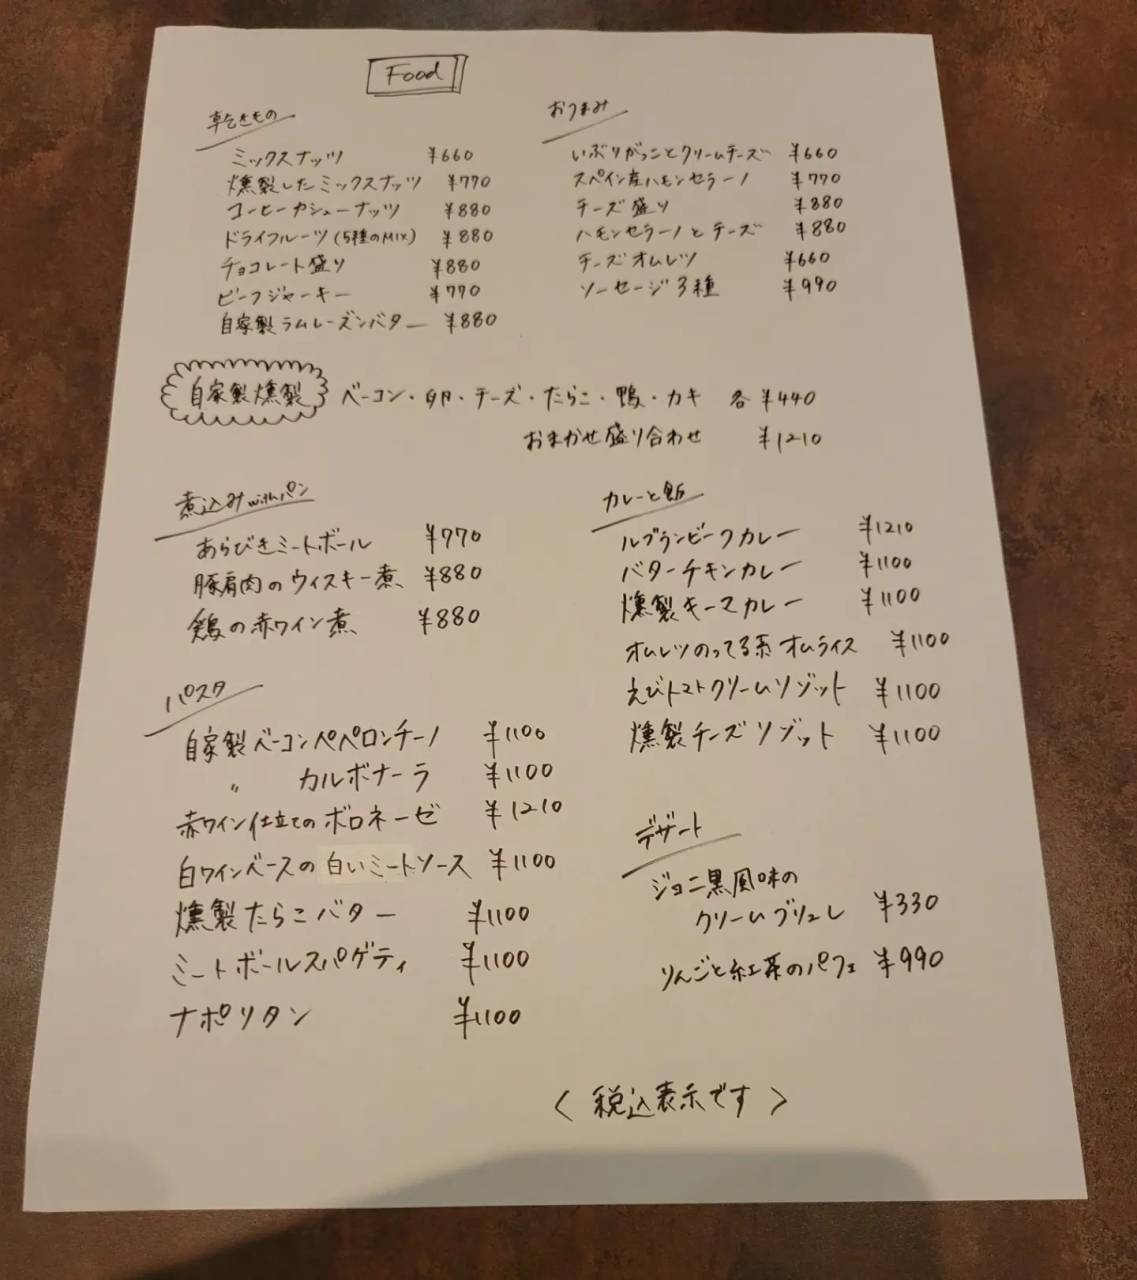 Food
乾きもの
ミックスナッツ ¥660
燻製したミックスナッツ ¥770
コーヒーカシューナッツ ¥880
ドライフルーツ(5種のMIX) ¥880
チョコレート盛り ¥880
ビーフジャーキー ¥770
自家製ラムレーズンバター ¥880
おつまみ
いぶりがっことクリームチーズ ¥660
スペイン産ハモンセラーノ ¥770
チーズ盛り ¥880
ハモンセラーノとチーズ ¥880
チーズオムレツ ¥660
ソーセージ3種 ¥990
自家製燻製 ベーコン・卵・チーズ・たらこ・鴨・カキ 各¥440
おまかせ盛り合わせ ¥1210
煮込みwithパン
あらびきミートボール ¥770
豚肩肉のウイスキー煮 ¥880
鶏の赤ワイン煮 ¥880
パスタ
自家製ベーコンペペロンチーノ ¥1100
〃 カルボナーラ ¥1100
赤ワイン仕立てのボロネーゼ ¥1210
白ワインベースの白いミートソース ¥1100
燻製たらこバター ¥1100
ミートボールスパゲティ ¥1100
ナポリタン ¥1100
カレーと飯
ルブランビーフカレー ¥1210
バターチキンカレー ¥1100
燻製キーマカレー ¥1100
オムレツのってる系オムライス ¥1100
えびトマトクリームリゾット ¥1100
燻製チーズリゾット ¥1100
デザート
ジョニ黒風味の
クリームブリュレ ¥330
りんごと紅茶のパフェ ¥990
〈税込表示です〉